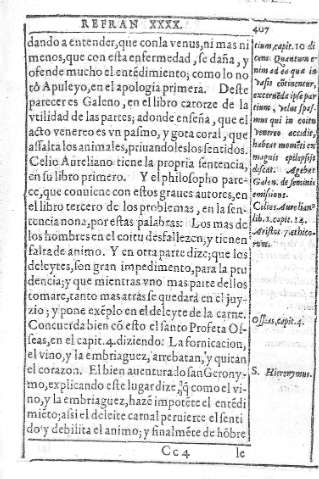 REFRAN XXXX.
407
dando a entender, que con la venus, ni mas ni
menos, que con esta enfermedad, se daña, y
ofende mucho el entēdimiento; como lo no
tò Apuleyo, en el apología primera. Deste
parecer es Galeno, en el libro catorze de la
vtilidad de las partes; adonde enseña, que el
acto venereo es vn pasmo, y gota coral, que
assalta los animales, priuandoles los sentidos.
Celio Aureliano tiene la propria sentencia,
en su libro primero. Y el philosopho pare-
ce, que conuiene con estos graues autores, en
el libro tercero de los problemas, en la sen-
tencia nona, por estas palabras: Los mas de
los hombres en el coitu desfallezcn, y tienen
falta de animo. Y en otra parte dize; que los
deleytes, son gran impedimento, para la pru
dencia; y que mientras vno mas parte dellos
tomare, tanto mas atràs se quedarà en el juy-
zio; y pone exēplo en el deleyte de la carne.
Concuerda bien cō esto el santo Profeta Of-
seas, en el capit. 4. diziendo: La fornicacion,
el vino, y la embriaguez, arrebatan, y quitan
el corazon. El bien auenturado san Gerony-
mo, explicando este lugar dize, q̄ como el vi-
no, y la embriaguez, hazē impotēte el entēdi
miēto; assi el deleite carnal peruierte el senti
do y debilita el animo; y finalmēte de hōbre
Cc4 le
rium, capit. 10 di
cens: Quantum e-
nim ad ea quæ in
vasis continentur,
excernēda ipse par
tium, velut spas-
mus qui in coitu
venereo accidit,
habeat momēti in
magnis epilepsiis
discas.
Galen. de seminis
emissione.
Celius Aurelian9
lib. 1. capit. 12.
Aristot.
Osseas, capit. 4.
S. Hieronymus.